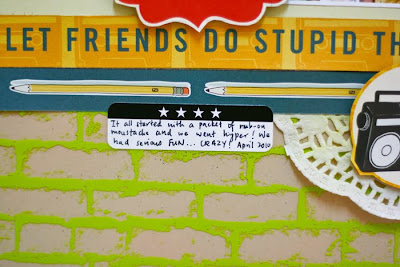 LET FRIENDS DO STUPID TH
It all started with a packet of rub-on
moustache and we went hyper! We
had serious FUN... CRAZY! April 2010